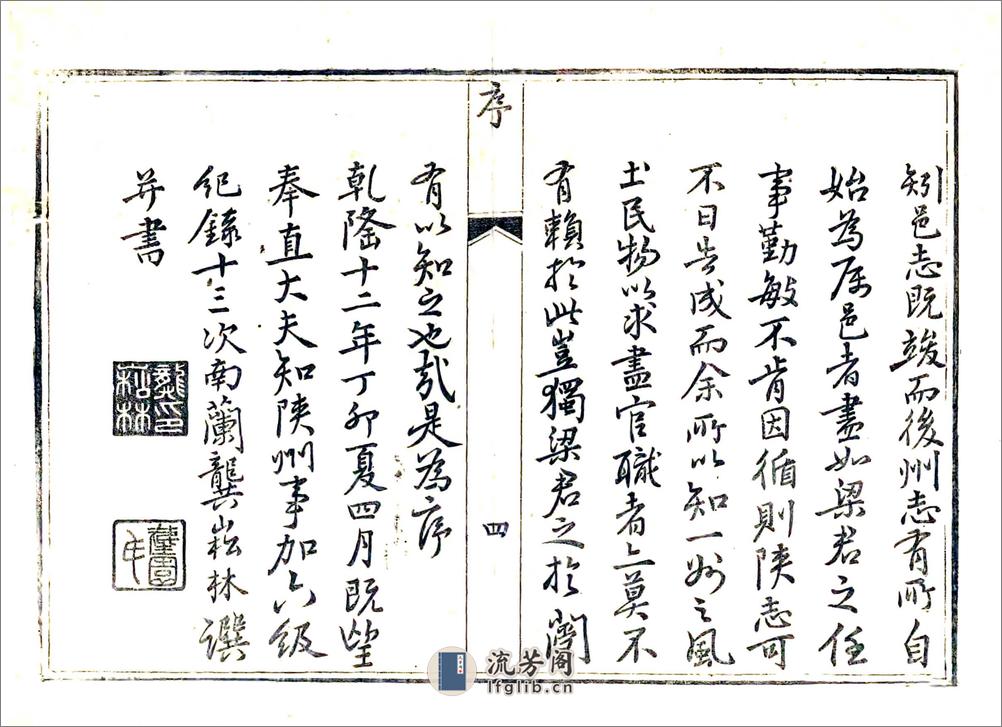 矧邑志既竣而後州志有所自
始為属邑者盡如梁君之任
事勤敏不肯因循則陕志可
不日告成而余所以知一州之風
土民物以求盡官職者亦莫不
有賴於此豈獨梁君之於閿
序
四
有以知之也哉是為序
乾隆十二年丁卯夏四月既望
奉直大夫知陕州事加六级
纪錄十三次南蘭龔崧林譔
并書
龔印崧林
流芳阁
lfglib.cn